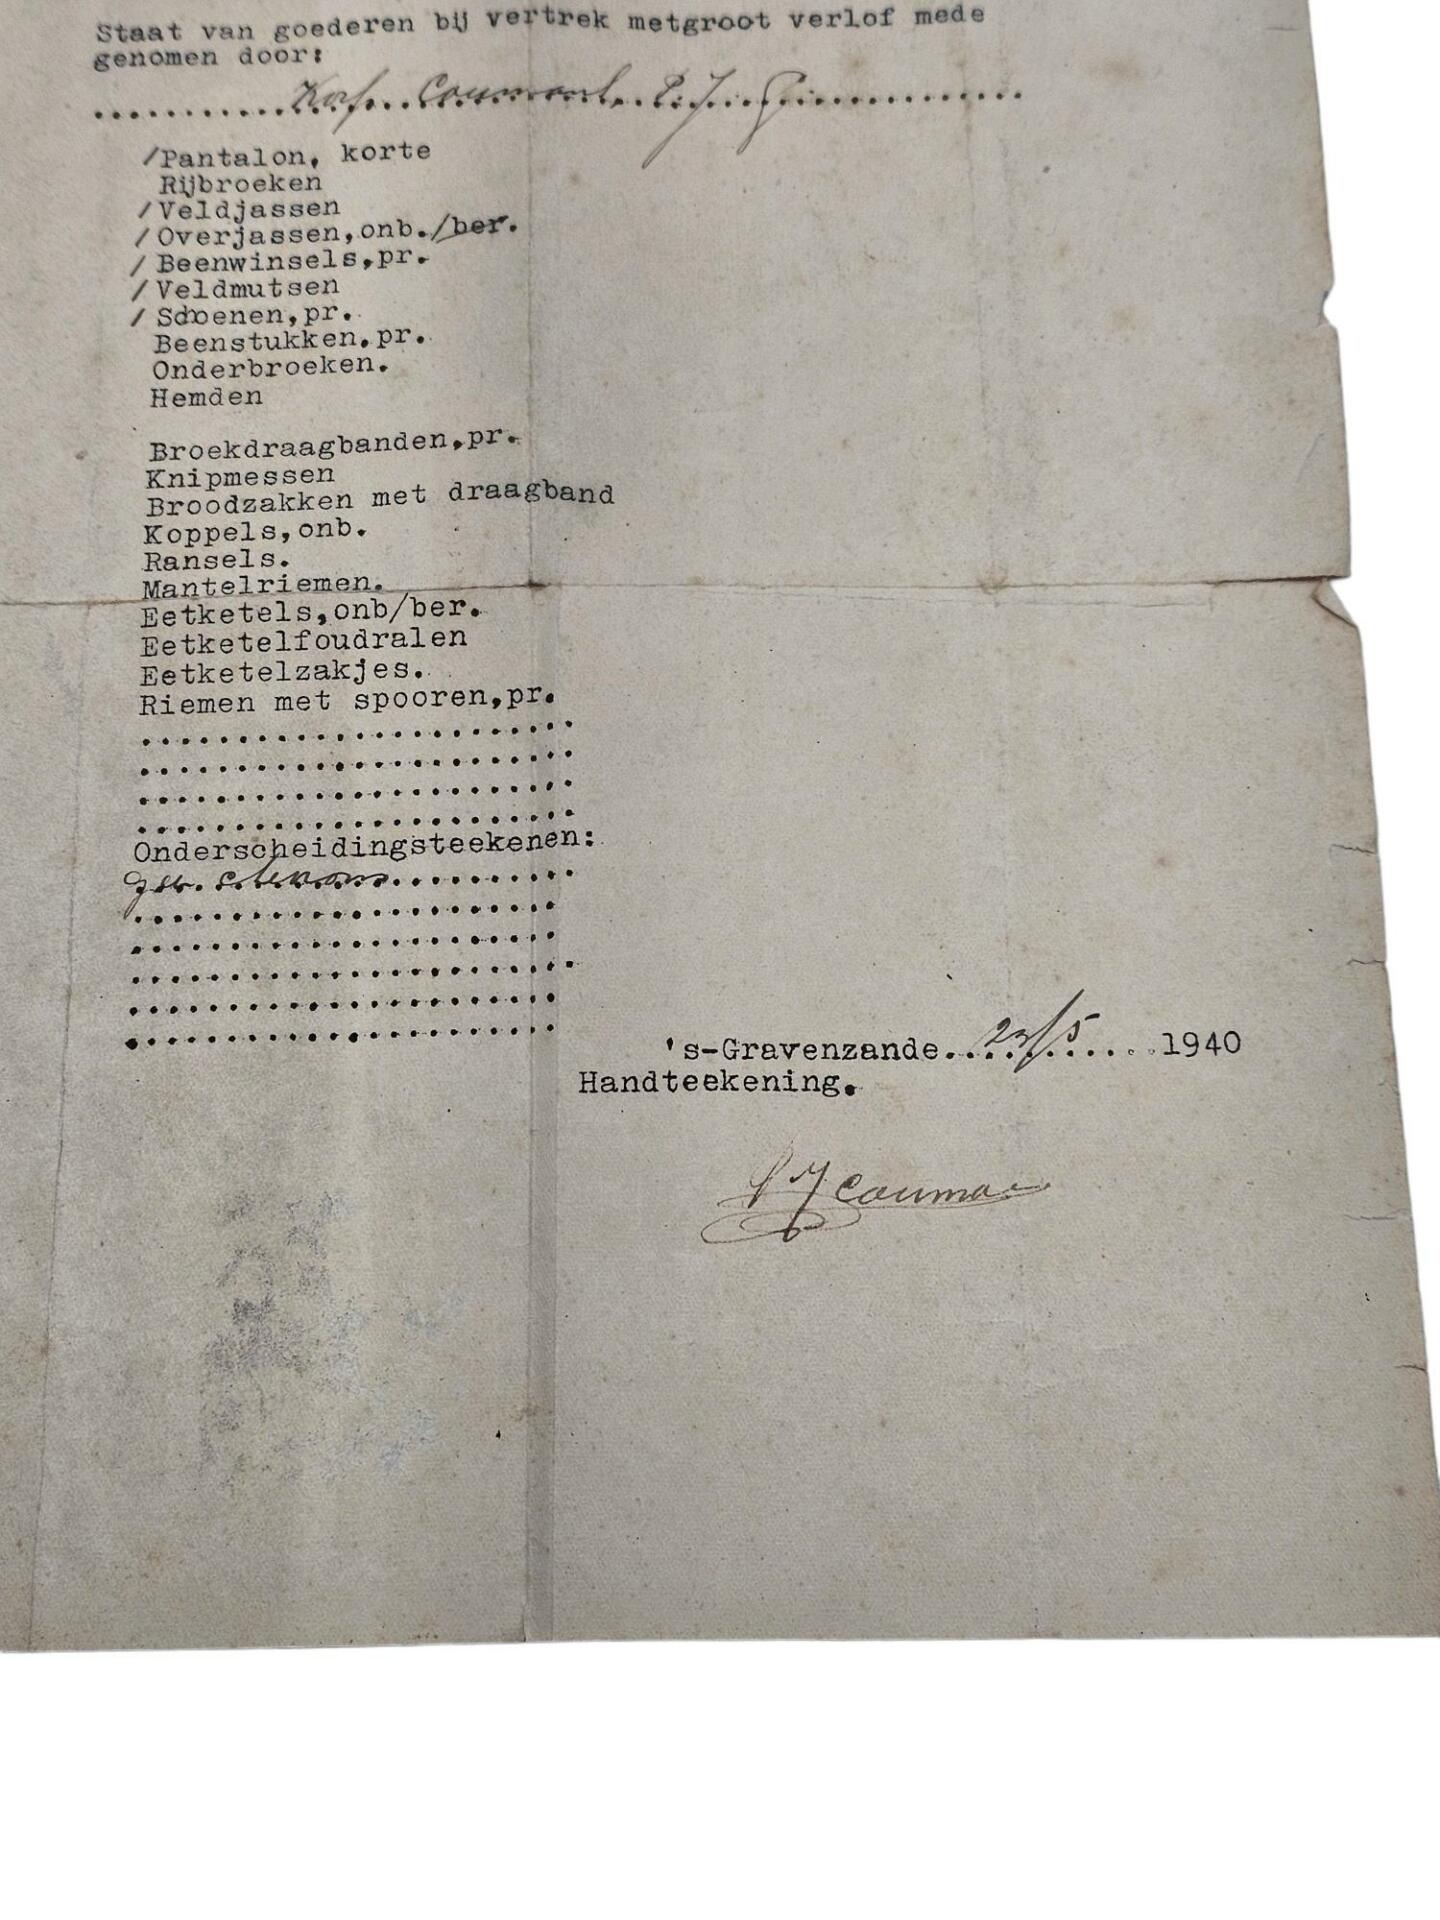 Staat van goederen bij vertrek metgroot verlof mede
genomen door:
P. J. G.
/Pantalon, korte
Rijbroeken
/Veldjassen
/Overjassen,onb./ber.
/Beenwinsels,pr.
/Veldmutsen
/Schoenen,pr.
Beenstukken.pr.
Onderbroeken.
Hemden
Broekdraagbanden,pr.
Knipmessen
Broodzakken met draagband
Koppels,onb.
Ransels.
Mantelriemen.
Eetketels,onb/ber.
Eetketelfoudralen
Eetketelzakjes.
Riemen met spooren,pr.
......................
......................
......................
......................
Onderscheidingsteekenen:
......................
......................
......................
......................
......................
's-Gravenzande. 23/5 1940
Handteekening.
P J Couma